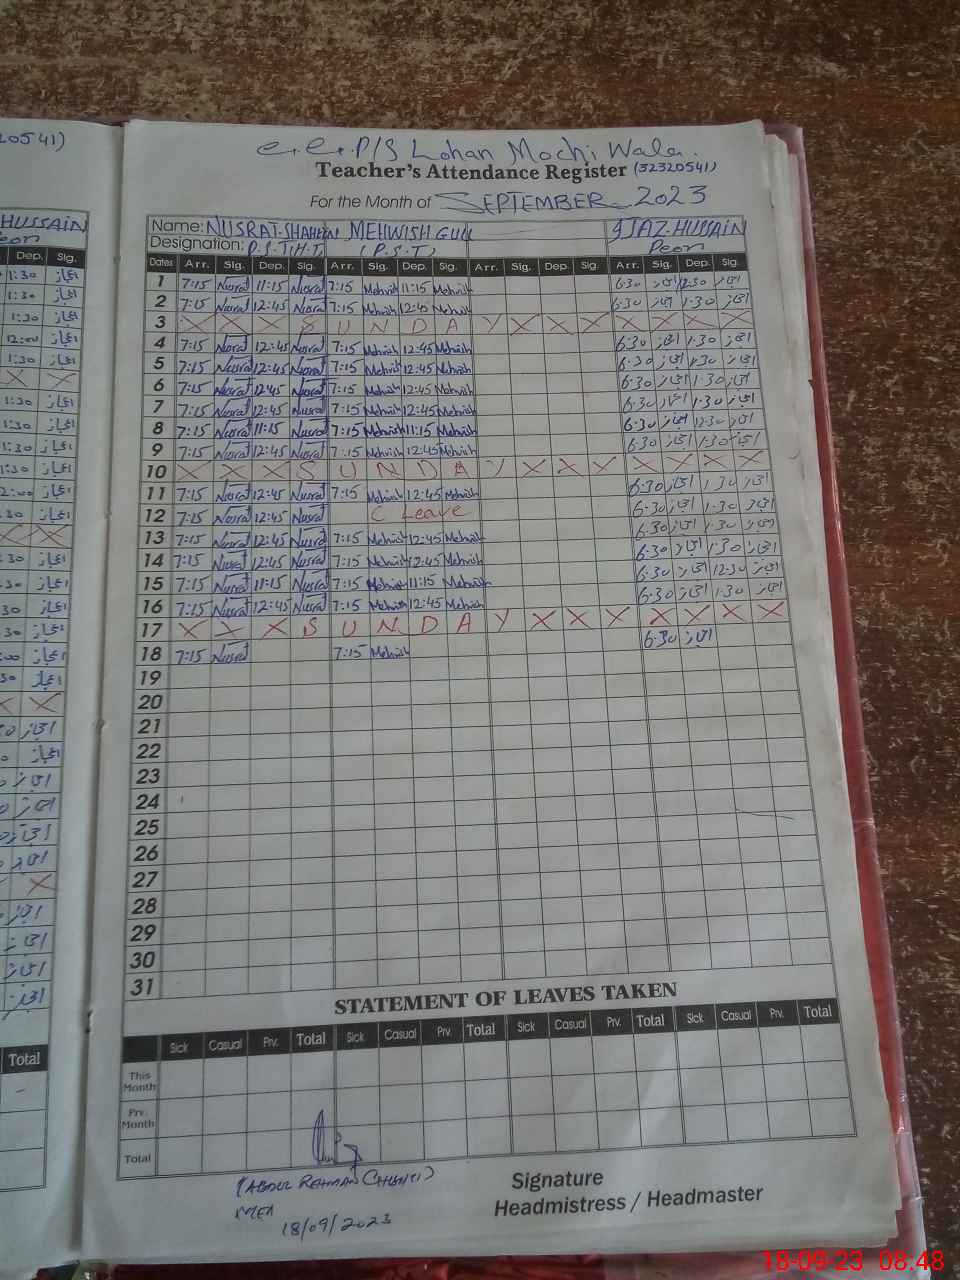 20541)
HUSSAIN
Peon
Dep. Sig.
1:30 اعجاز
1:30 اعجاز
1:30 اعجاز
12:00 اعجاز
1:30 اعجاز
X X
1:30 اعجاز
1:30 اعجاز
1:30 اعجاز
1:30 اعجاز
Total
-
P/S Lohan Mochi Wala.
Teacher's Attendance Register (32320541)
For the Month of SEPTEMBER 2023
Name: NUSRAT-SHAHEEN MEHWISH GULL IJAZ-HUSSAIN
Designation: P.S.T(H.T) (P.S.T) Peon
Dates Arr. Sig. Dep. Sig. Arr. Sig. Dep. Sig. Arr. Sig. Dep. Sig. Arr. Sig. Dep. Sig.
1 7:15 Nusrat 11:15 Nusrat 7:15 Mehwish 11:15 Mehwish 6:30 اعجاز 12:30 اعجاز
2 7:15 Nusrat 12:45 Nusrat 7:15 Mehwish 12:45 Mehwish 6:30 اعجاز 1:30 اعجاز
3 X X X S U N D A Y X X X X X X X
4 7:15 Nusrat 12:45 Nusrat 7:15 Mehwish 12:45 Mehwish 6:30 اعجاز 1:30 اعجاز
5 7:15 Nusrat 12:45 Nusrat 7:15 Mehwish 12:45 Mehwish 6:30 اعجاز 1:30 اعجاز
6 7:15 Nusrat 12:45 Nusrat 7:15 Mehwish 12:45 Mehwish 6:30 اعجاز 1:30 اعجاز
7 7:15 Nusrat 12:45 Nusrat 7:15 Mehwish 12:45 Mehwish 6:30 اعجاز 1:30 اعجاز
8 7:15 Nusrat 11:15 Nusrat 7:15 Mehwish 11:15 Mehwish 6:30 اعجاز 12:30 اعجاز
9 7:15 Nusrat 12:45 Nusrat 7:15 Mehwish 12:45 Mehwish 6:30 اعجاز 1:30 اعجاز
10 X X X S U N D A Y X X X X X X X
11 7:15 Nusrat 12:45 Nusrat 7:15 Mehwish 12:45 Mehwish 6:30 اعجاز 1:30 اعجاز
12 7:15 Nusrat 12:45 Nusrat C Leave 6:30 اعجاز 1:30 اعجاز
13 7:15 Nusrat 12:45 Nusrat 7:15 Mehwish 12:45 Mehwish 6:30 اعجاز 1:30 اعجاز
14 7:15 Nusrat 12:45 Nusrat 7:15 Mehwish 12:45 Mehwish 6:30 اعجاز 1:30 اعجاز
15 7:15 Nusrat 11:15 Nusrat 7:15 Mehwish 11:15 Mehwish 6:30 اعجاز 12:30 اعجاز
16 7:15 Nusrat 12:45 Nusrat 7:15 Mehwish 12:45 Mehwish 6:30 اعجاز 1:30 اعجاز
17 X X X S U N D A Y X X X X X X X
18 7:15 Nusrat 7:15 Mehwish 6:30 اعجاز
19
20
21
22
23
24
25
26
27
28
29
30
31
STATEMENT OF LEAVES TAKEN
Sick Casual Prv. Total Sick Casual Prv. Total Sick Casual Prv. Total Sick Casual Prv. Total
This Month
Prv. Month
Total
(ABDUL REHMAN CHISHTI)
MEA
18/09/2023
Signature
Headmistress / Headmaster
18-09-23 08:48